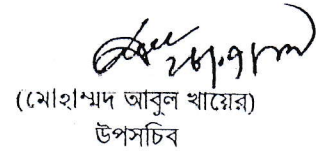 (মোহাম্মদ আবুল খায়ের)
উপসচিব